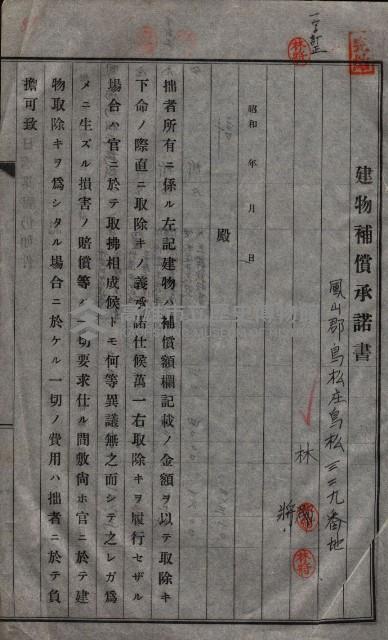 一字訂正
林将
建物補償承諾書
鳳山郡鳥松庄鳥松三二九番地
林
将
林将
昭和　年　月　日
殿
拙者所有ニ係ル左記建物ハ補償額欄記載ノ金額ヲ以テ取除キ
下命ノ際直ニ取除キノ義承諾仕候萬一右取除キヲ履行セザル
場合ハ官ニ於テ取拂相成候トモ何等異議無之而シテ之レガ爲
メニ生ズル損害ノ賠償等ハ一切要求仕ル間敷尙ホ官ニ於テ建
物取除キヲ爲シタル場合ニ於ケル一切ノ費用ハ拙者ニ於テ負
擔可致